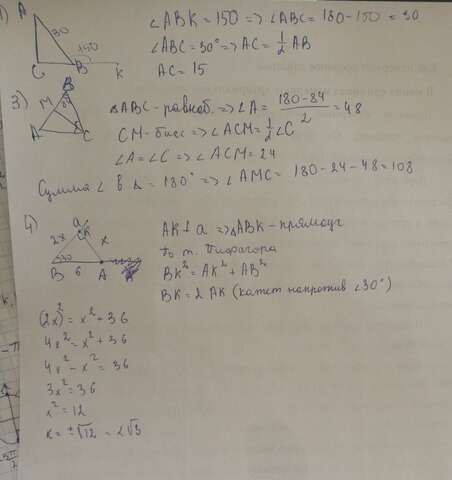 1)
A
30
150
C
B
K
∠ABK = 150 => ∠ABC = 180 - 150 = 30
∠ABC = 30° => AC = 1/2 AB
AC = 15
3)
B
84
M
A
C
△ABC - равноб. => ∠A = (180 - 84)/2 = 48
CM - бисс => ∠ACM = 1/2 ∠C
∠A = ∠C => ∠ACM = 24
Сумма ∠ в △ = 180° => ∠AMC = 180 - 24 - 48 = 108
4)
a
K
2x
x
30
B
6
A
AK ⊥ a => △ABK - прямоуг
По т. Пифагора
BK² = AK² + AB²
BK = 2 AK (катет напротив ∠30°)
(2x)² = x² + 36
4x² = x² + 36
4x² - x² = 36
3x² = 36
x² = 12
x = ±√12 = 2√3